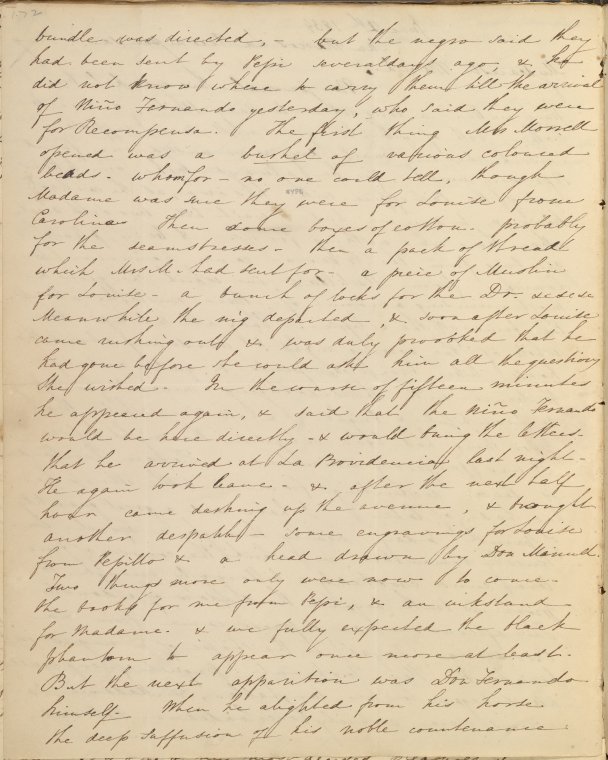 172
bundle was directed, - but the negro said they
had been sent by Pepi several days ago, & he
did not know where to carry them till the arrival
of Niño Fernando yesterday, who said they were
for Recompensa. The first thing Mrs Morrell
opened was a bushel of various coloured
beads - whom for - no one could tell, though
Madame was sure they were for Louise from
Carolina Then some boxes of cotton - probably
for the seamstresses - then a pack of thread
which Mrs M. had sent for - a piece of Muslin
for Louise - a bunch of locks for the Dr. &c &c &c
Meanwhile the nig departed, & soon after Louise
came rushing out & was duly provoked that he
had gone before she could ask him all the questions
she wished - In the course of fifteen minutes
he appeared again, & said that the Niño Fernando
would be here directly - & would bring the letters -
that he arrived at La Providencia last night -
He again took leave - & after the next half
hour came dashing up the avenue, & brought
another despatch - some engravings for Louise
from Pepillo & a head drawn by Don Manuel.
Two things more only were now to come -
the books for me from Pepi, & an inkstand
for Madame - & we fully expected the black
phantom to appear once more at least -
But the next apparition was Don Fernando
himself - When he alighted from his horse
the deep suffusion of his noble countenance